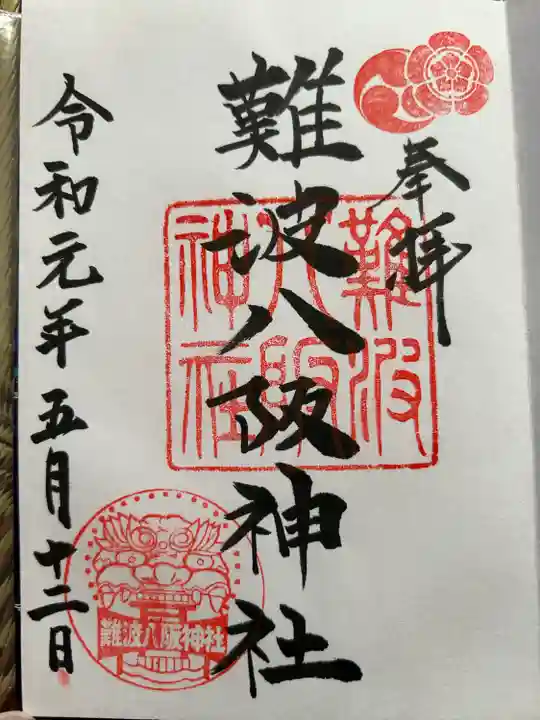 奉拝
難波八阪神社
難波
八阪
神社
令和元年五月十二日
難波八阪神社